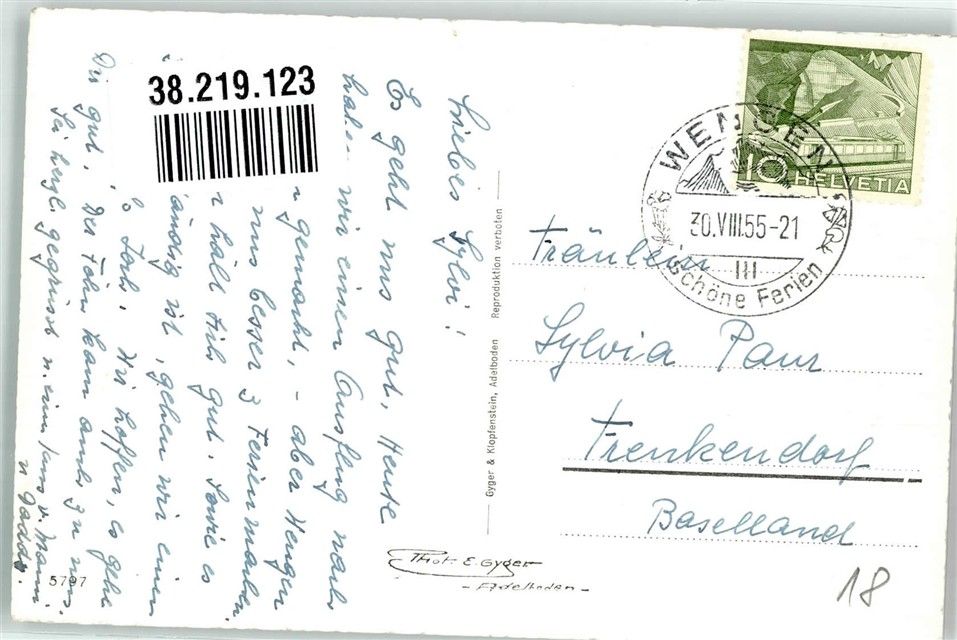 38.219.123
Liebes Sylvi!
Es geht uns gut, Heute
haben wir einen Ausflug nach
gemacht, - aber Wengen
uns besser z Ferienmachen
hält sich gut. Sowie es
ändig ist, gehen wir einen
Wir hoffen, es gehe
Dir gut. Der kann zu uns.
Sei herzl. gegrüsst v. Mami
5797
Gyger & Klopfenstein, Adelboden Reproduktion verboten
Phot. E. Gyger
- Adelboden -
WENGEN
30.VIII.55-21
III
Schöne Ferien
10 HELVETIA
Fräulein
Sylvia
Frenkendorf
Baselland
18